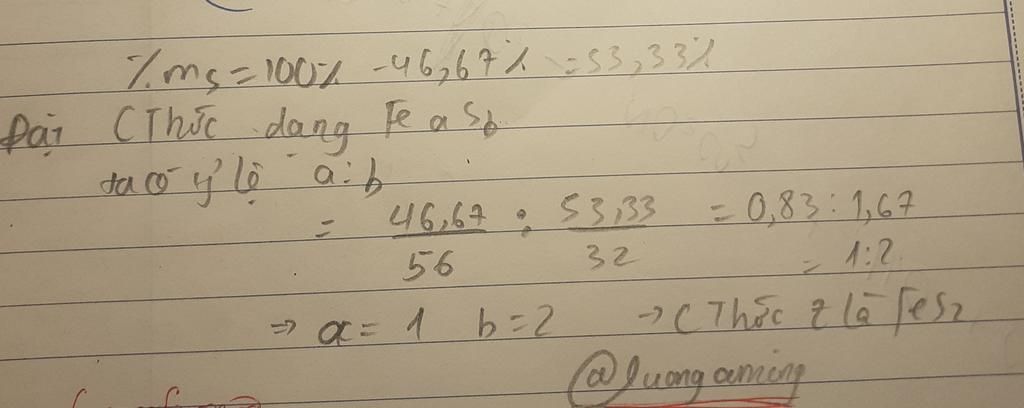 %ms = 100% - 46,67% = 53,33%
Đặt CThức dạng FeaSb
ta có tỷ lệ a : b
= 46,67/56 : 53,33/32 = 0,83 : 1,67
= 1:2
⇒ a = 1 b = 2 → CThức Z là FeS2
@luongaming